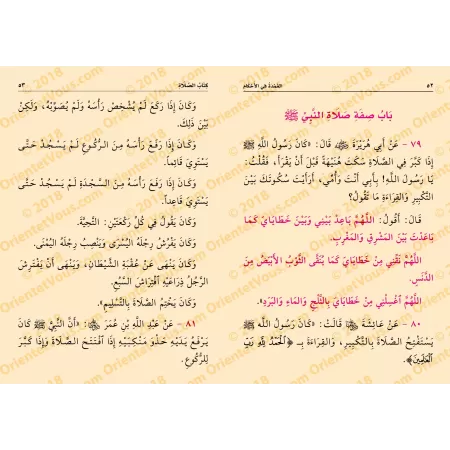 ٥٢ العُمْدَةُ فِي الأَحْكَامِ
بَابُ صِفَةِ صَلَاةِ النَّبِيِّ ﷺ
٧٩ - عَنْ أَبِي هُرَيْرَةَ ﵁ قَالَ: «كَانَ رَسُولُ اللَّهِ ﷺ
إِذَا كَبَّرَ فِي الصَّلَاةِ سَكَتَ هُنَيْهَةً قَبْلَ أَنْ يَقْرَأَ، فَقُلْتُ:
يَا رَسُولَ اللَّهِ! بِأَبِي أَنْتَ وَأُمِّي، أَرَأَيْتَ سُكُوتَكَ بَيْنَ
التَّكْبِيرِ وَالقِرَاءَةِ مَا تَقُولُ؟
قَالَ: أَقُولُ: اللَّهُمَّ بَاعِدْ بَيْنِي وَبَيْنَ خَطَايَايَ كَمَا
بَاعَدْتَ بَيْنَ المَشْرِقِ وَالمَغْرِبِ.
اللَّهُمَّ نَقِّنِي مِنْ خَطَايَايَ كَمَا يُنَقَّى الثَّوْبُ الأَبْيَضُ مِنَ
الدَّنَسِ.
اللَّهُمَّ اغْسِلْنِي مِنْ خَطَايَايَ بِالثَّلْجِ وَالمَاءِ وَالبَرَدِ».
٨٠ - عَنْ عَائِشَةَ ﵂ قَالَتْ: «كَانَ رَسُولُ اللَّهِ ﷺ
يَسْتَفْتِحُ الصَّلَاةَ بِالتَّكْبِيرِ، وَالقِرَاءَةَ بِـ ﴿الْحَمْدُ لِلَّهِ رَبِّ
الْعَالَمِينَ﴾.
كِتَابُ الصَّلَاةِ ٥٣
وَكَانَ إِذَا رَكَعَ لَمْ يُشْخِصْ رَأْسَهُ وَلَمْ يُصَوِّبْهُ، وَلَكِنْ
بَيْنَ ذَلِكَ.
وَكَانَ إِذَا رَفَعَ رَأْسَهُ مِنَ الرُّكُوعِ لَمْ يَسْجُدْ حَتَّى
يَسْتَوِيَ قَائِماً.
وَكَانَ إِذَا رَفَعَ رَأْسَهُ مِنَ السَّجْدَةِ لَمْ يَسْجُدْ حَتَّى
يَسْتَوِيَ قَاعِداً.
وَكَانَ يَقُولُ فِي كُلِّ رَكْعَتَيْنِ: التَّحِيَّةَ.
وَكَانَ يَفْرُشُ رِجْلَهُ اليُسْرَى وَيَنْصِبُ رِجْلَهُ اليُمْنَى.
وَكَانَ يَنْهَى عَنْ عُقْبَةِ الشَّيْطَانِ، وَيَنْهَى أَنْ يَفْتَرِشَ
الرَّجُلُ ذِرَاعَيْهِ افْتِرَاشَ السَّبُعِ.
وَكَانَ يَخْتِمُ الصَّلَاةَ بِالتَّسْلِيمِ».
٨١ - عَنْ عَبْدِ اللَّهِ بْنِ عُمَرَ ﵄: «أَنَّ النَّبِيَّ ﷺ كَانَ
يَرْفَعُ يَدَيْهِ حَذْوَ مَنْكِبَيْهِ إِذَا افْتَتَحَ الصَّلَاةَ وَإِذَا كَبَّرَ
لِلرُّكُوعِ.